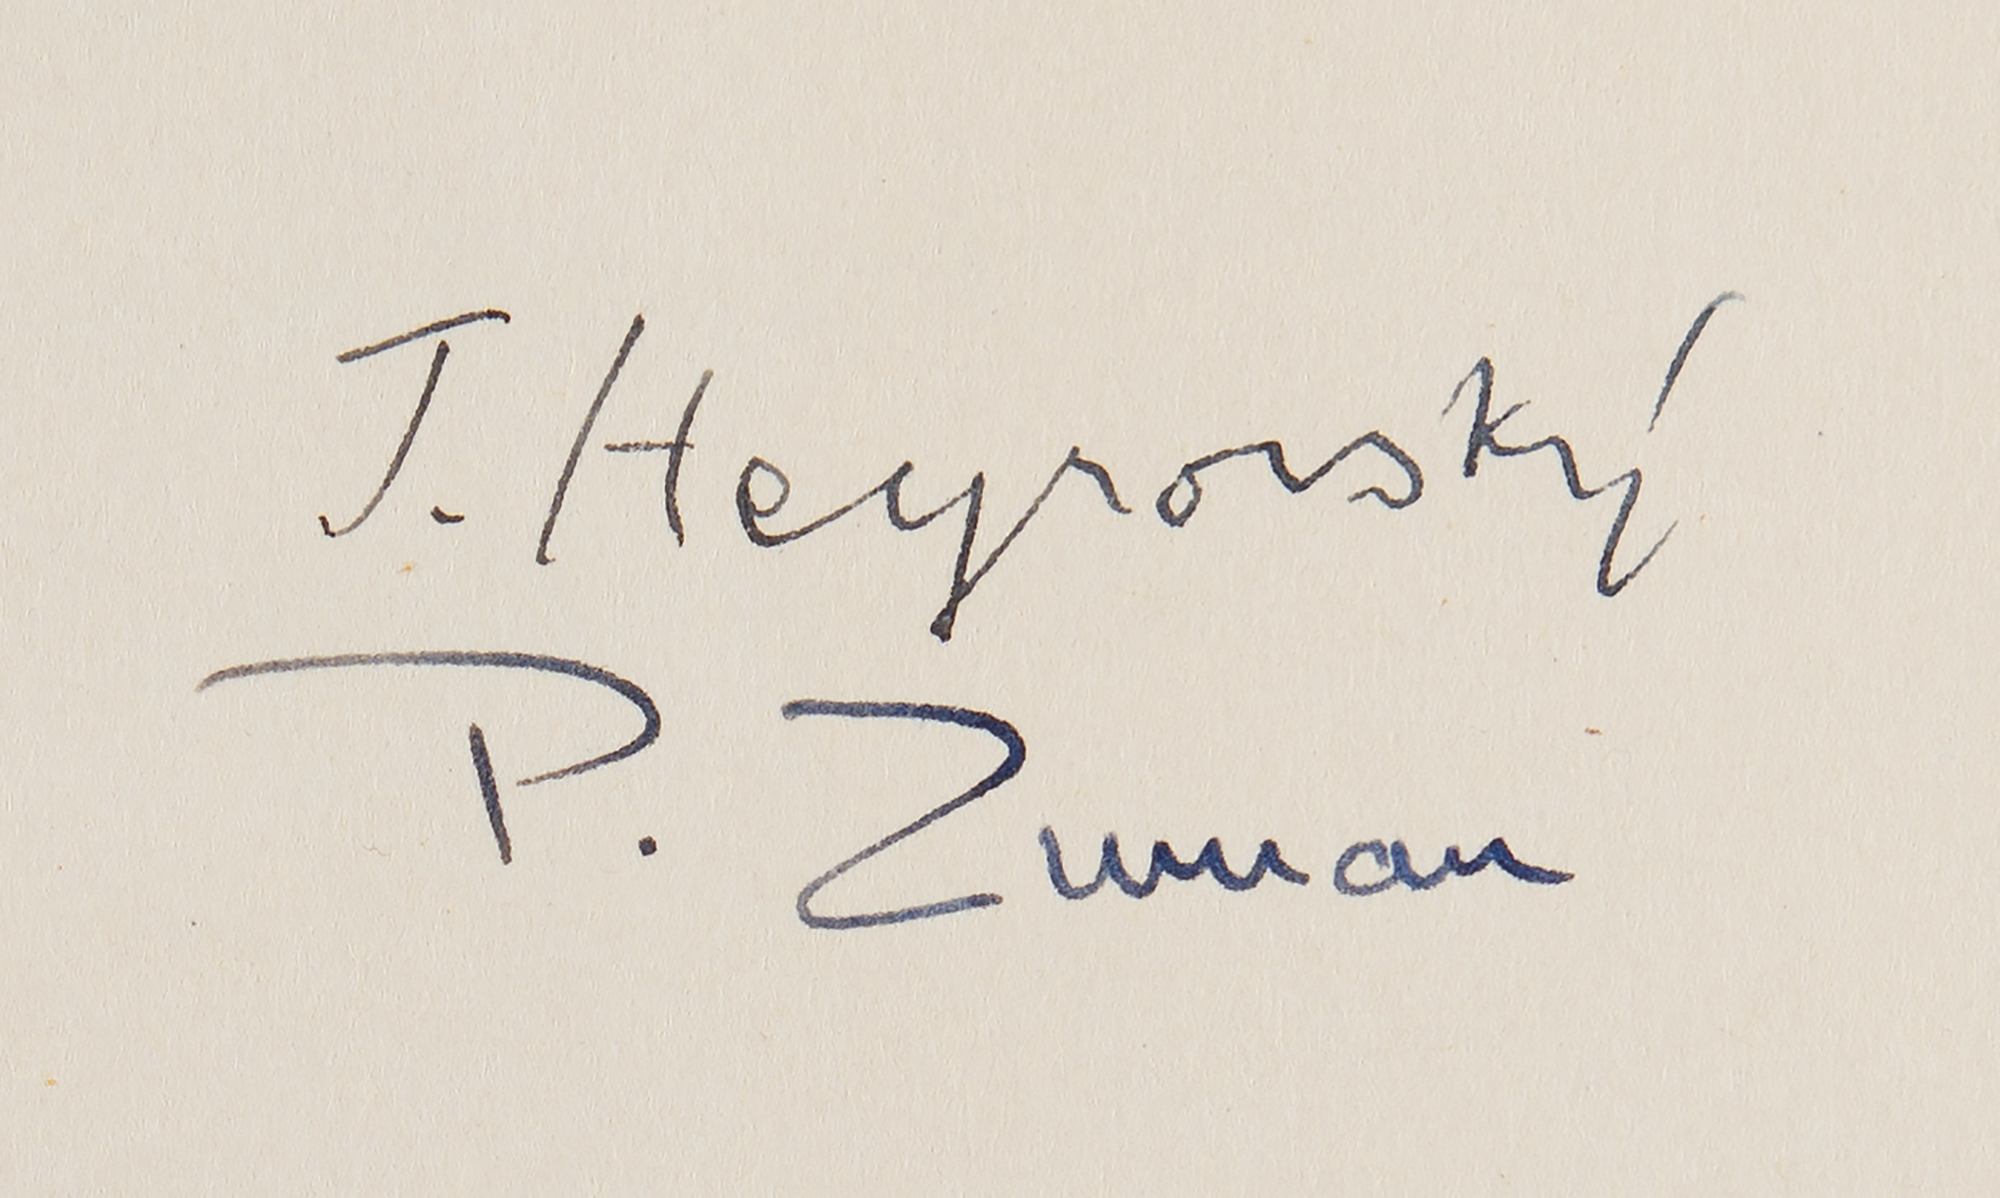 J. Heyrovský
P. Zuman